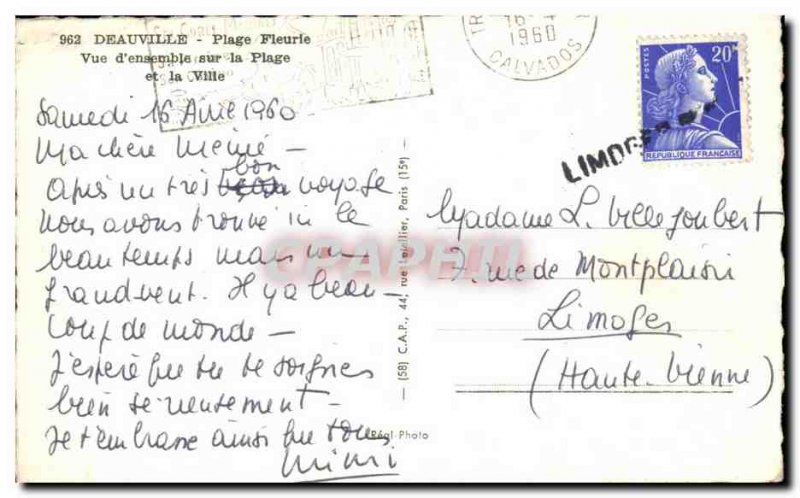 962 DEAUVILLE - Plage Fleurie
Vue d'ensemble sur la Plage
et la Ville
16-4
1960
CALVADOS
POSTES
20F
RÉPUBLIQUE FRANÇAISE
LIMOGES
Samedi 16 Avril 1960
Ma chère Mémé -
bon
Après un très beau voyage
nous avons trouvé ici le
beau temps mais un
grand vent. Il y a beau-
coup de monde -
J'espère que tu te soignes
bien sérieusement -
Je t'embrasse ainsi que tous
Mimi
Madame L. Villejoubert
7. rue de Montplaisir
Limoges
(Haute-Vienne)
(58) C.A.P., 44, rue Letellier, Paris (15e)
Réal-Photo
CPAPHIL